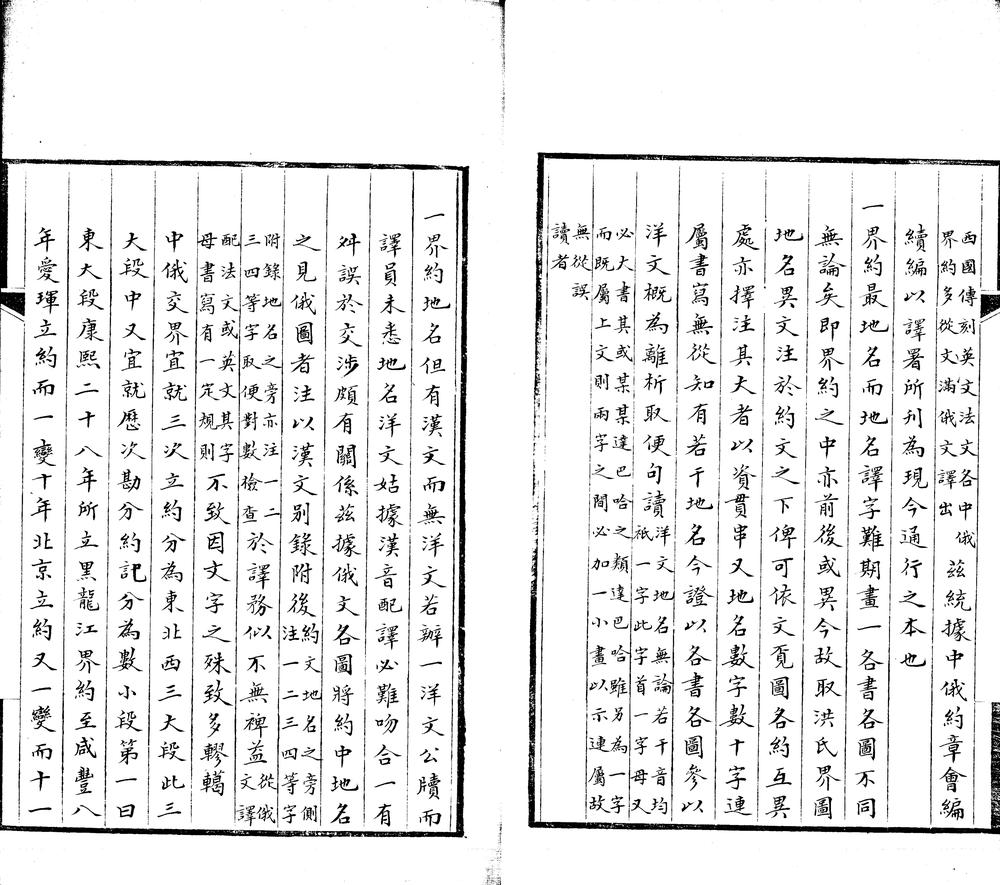 西國傳刻英文法文各中俄
界約多從文滿俄文譯出
茲統據中俄約章會編
續編以譯署所刊為現今通行之本也
一界約最地名而地名譯字難期畫一各書各圖不同
無論矣即界約之中亦前後或異今故取洪氏界圖
地名異文注於約文之下俾可依文覓圖各約互異
處亦擇注其大者以資貫串又地名數字數十字連
屬書寫無從知有若干地名今證以各書各圖參以
洋文概為離析取便句讀
洋文地名無論若干音均
祇一字此字首一字母又
必大書其或某某達巴哈之類達巴哈雖另為一字
而既屬上文則兩字之間必加一小畫以示連屬故
無從誤
讀者
一界約地名但有漢文而無洋文若辦一洋文公牘而
譯員未悉地名洋文姑據漢音配譯必難吻合一有
舛誤於交涉頗有關係茲據俄文各圖將約中地名
之見俄圖者注以漢文別錄附後
約文地名之旁側
注一二三四等字
附錄地名之旁亦注一二
三四等字取便對數檢查
於譯務似不無裨益
從俄
文譯
配法文或英文其字
母書寫有一定規則
不致因文字之殊致多轇轕
中俄交界宜就三次立約分為東北西三大段此三
大段中又宜就歷次勘分約記分為數小段第一曰
東大段康熙二十八年所立黑龍江界約至咸豐八
年愛琿立約而一變十年北京立約又一變而十一